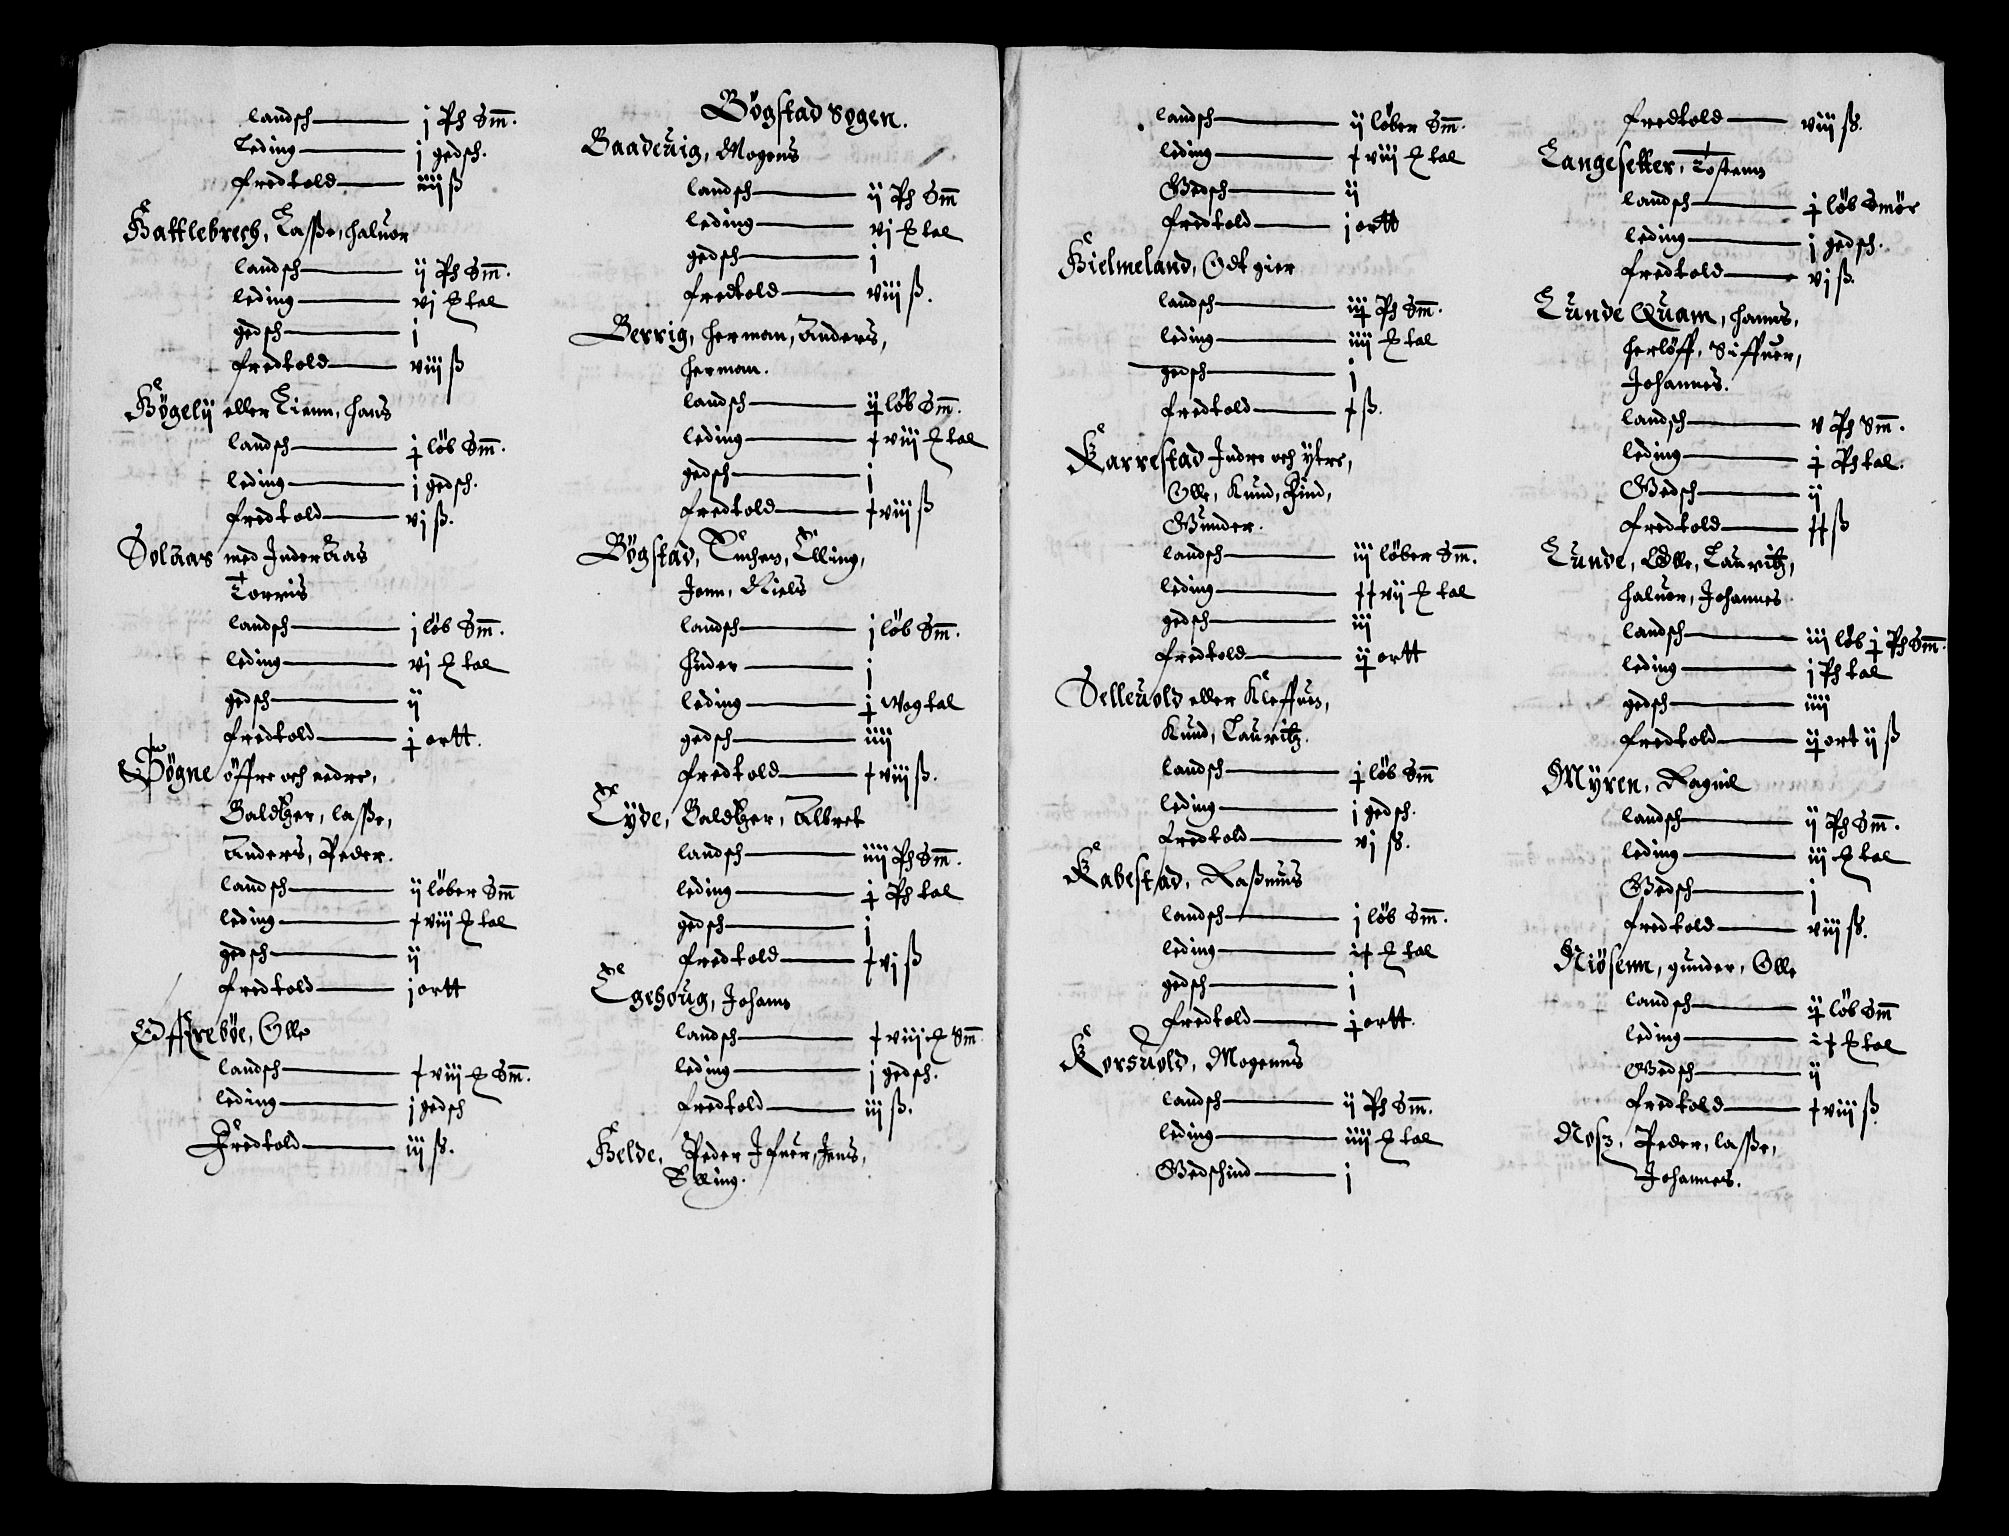 landsch — j Ph Sm̄.
Leding — j gedsch.
fredtold — iiij ß
Hattlebrech, Lasse, haluor
landsch — ij Ph Sm̄.
leding — vj ℔ tal
gedsch — j
fredtold — viij ß
Högelij eller Lienn, hans
landsch — ɉ löb Sm̄.
leding — j gedsch.
fredtold — vj ß.
Solaas med Inder Aas
Torris
landsch — j löb Sm̄.
leding — vj ℔ tal
gedsch — ij
fredtold — ɉ ortt.
Bögne öffre och nedre,
Baldtzer, lasse,
Anders, Peder.
landsch — ij löber Sm̄
leding — x viij ℔ tal
gedsch — ij
fredtold — j ortt
Effreböe, Olle
landsch — x viij ℔ Sm̄.
leding — j gedsch
Fredtold — iij ß.
Bögstad Sogen.
Baadeuig, Mogens
landsch — ij Ph Sm̄
leding — vj ℔ tal
gedsch — j
fredtold — viij ß.
Berrig, herman, Anders,
herman.
landsch — iɉ löb Sm̄.
leding — x viij ℔ tal
gedsch — j
fredtold — x viij ß
Bögstad, Elling,
Jonn, Niels
landsch — j löb Sm̄.
huder — j
leding — ɉ Wog tal
gedsch — iiij
fredtold — x viij ß.
Eyde, Baldtzer, Albret
landsch — iiij Ph Sm̄.
leding — ɉ Ph tal
gedsch — j
fredtold — x vj ß
Egehoug, Johans
landsch — x viij ℔ Sm̄
leding — j gedsch.
fredtold — iij ß.
Helde, Peder Ifuer, Jens,
Elling.
landsch — ij löber Sm̄.
leding — x viij ℔ tal
Gedsch — ij
fredtold — j ortt
Hielmeland, Odt gier
landsch — iiɉ Ph Sm̄.
leding — iiij ℔ tal
gedsch — j
fredtold — x ß.
Karrestad Indre och ytre,
Olle, Knud, Find,
Gunder.
landsch — iij löber Sm̄.
leding — xx vij ℔ tal
gedsch — iij
fredtold — iɉ ortt
Selleuold eller Kleffues,
Knud, Lauritz.
landsch — ɉ löb Sm̄
leding — j gedsch.
fredtold — vj ß.
Kabestad, Rasmus
landsch — j löb Sm̄.
leding — ix ℔ tal
gedsch — j
fredtold — ɉ ortt.
Korsuold, Mogenns
landsch — ij Ph Sm̄.
leding — iiij ℔ tal
Gedschind — j
fredtold — viij ß.
Langesetter, Tostenn
landsch — ɉ löb Smör
leding — j gedsch.
fredtold — vj ß.
Lunde Quam, hanns,
herlöff, Siffuer,
Johannes.
landsch — v Ph Sm̄.
leding — ɉ Ph tal.
Gedsch — ij
fredtold — xx ß
Lunde, Olle, Lauritz,
haluor, Johannes
landsch — iij löb ɉ Ph Sm̄.
leding — j Ph tal
gedsch — iiij
fredtold — iɉ ort ij ß
Myren, Ragnil
landsch — ij Ph Sm̄.
leding — iij ℔ tal
Gedsch — j
fredtold — viij ß.
Niösenn, gunder, Olle
landsch — iɉ löb Sm̄
leding — ix ℔ tal
Gedsch — ij
fredtold — x viij ß
Nosz, Peder, lasse,
Johannes.